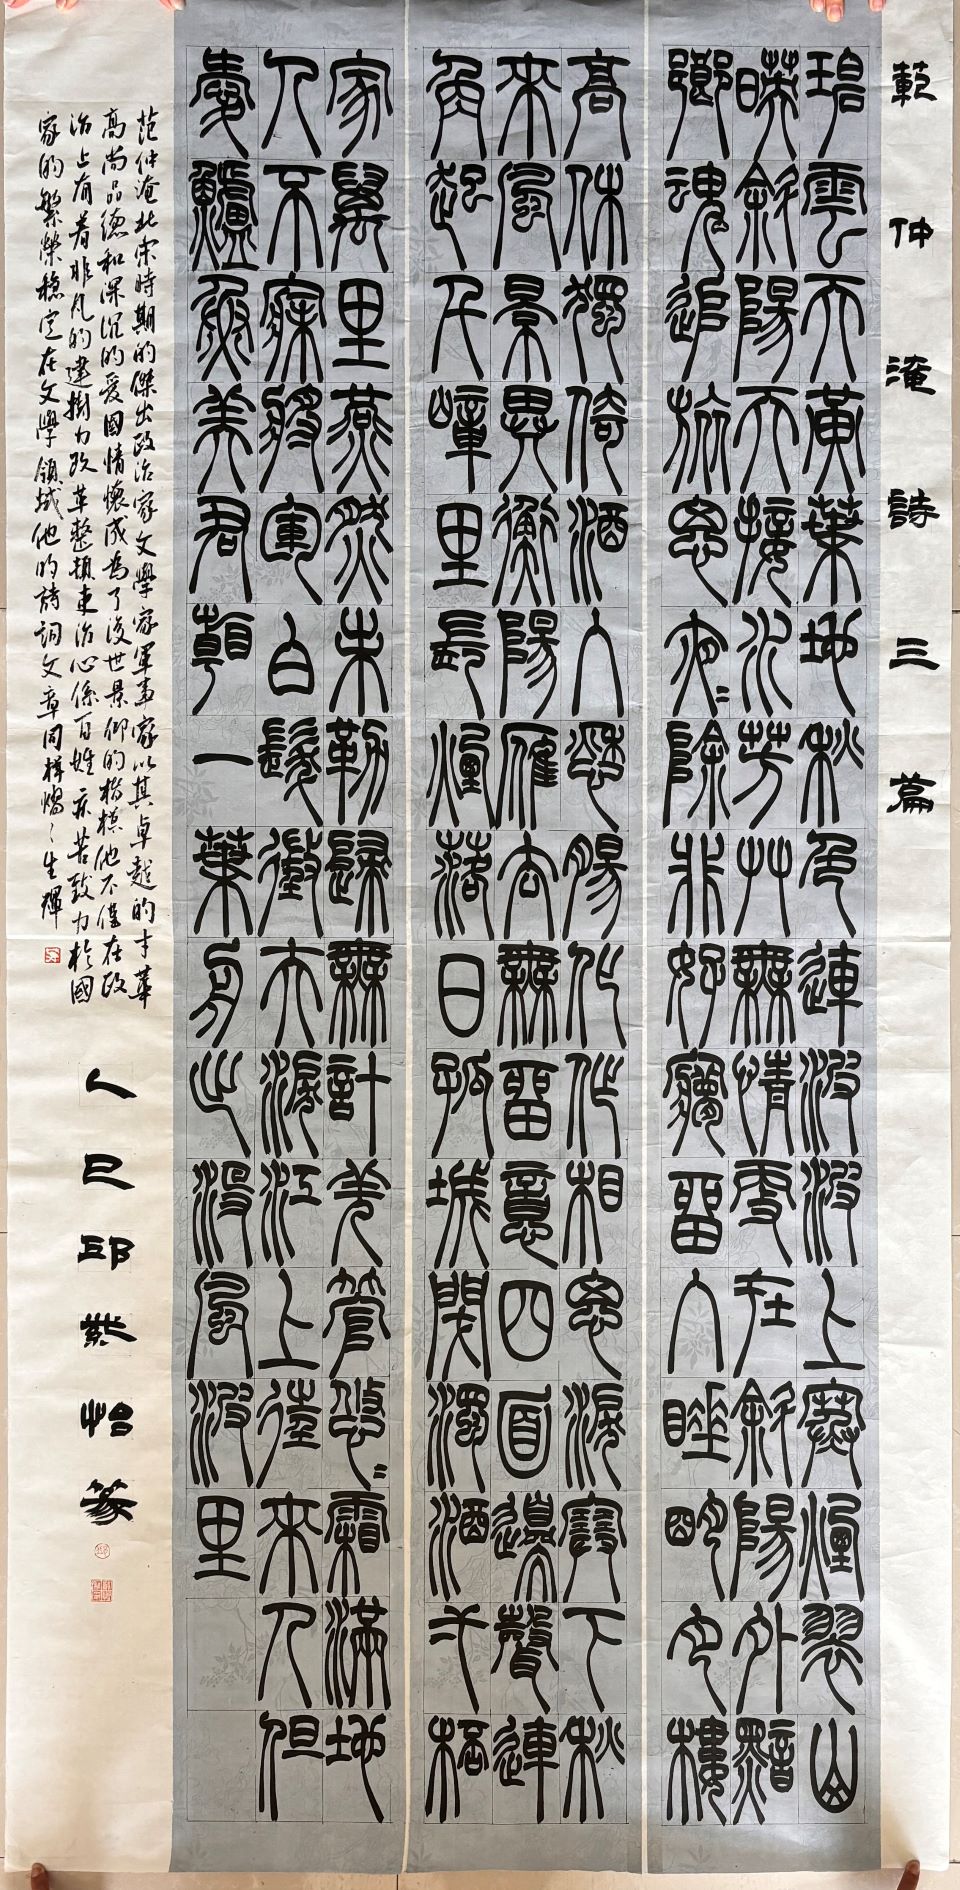 範仲淹詩三篇
碧雲天黃葉地秋色連波波上寒煙翠山
映斜陽天接水芳艸無情更在斜陽外黯
鄉魂追旅思夜〻除非好夢留人睡明月樓
高休獨倚酒入愁腸化作相思淚塞下秋
來風景異衡陽雁去無留意四面邊聲連
角起千嶂里長煙落日孤城閉濁酒一杯
家萬里燕然未勒歸無計羌管悠〻霜滿地
人不寐將軍白髮征夫淚江上往來人但
愛鱸魚美君一葉舟出沒風波里
范仲淹北宋時期的傑出政治家文學家軍事家以其卓越的才華
高尚品德和深沉的爱國情懷成為了後世景仰的楷模他不僅在政
治上有着非凡的建樹力改革整頓吏治心係百姓疾苦致力於國
家的繁榮穩定在文學領域他的詩詞文章同樣熠〻生輝
乙巳邱紫怡篆